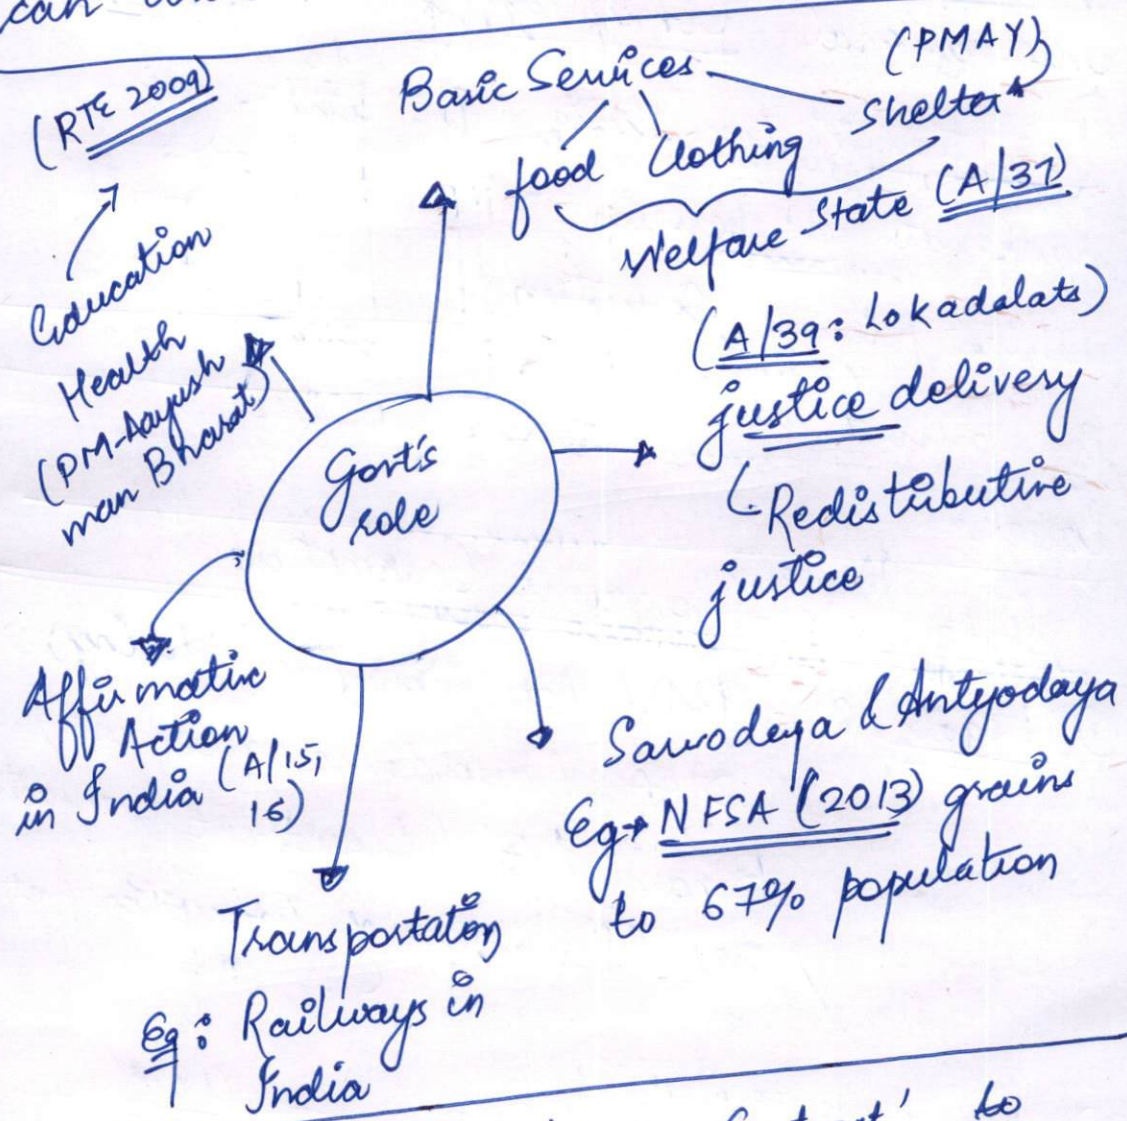 can
(RTE 2009)
Education
Health
(PM-Aayush
man Bharat)
Basic Services
(PMAY)
Shelter
food Clothing
Welfare State (A/37)
(A/39: Lokadalats)
justice delivery
Redistributive
justice
Govt's
role
Affirmative
Action
in India (A/15,
16)
Sarvodaya & Antyodaya
Eg → NFSA (2013) grains
to 67% population
Transportation
Eg: Railways in
India
to